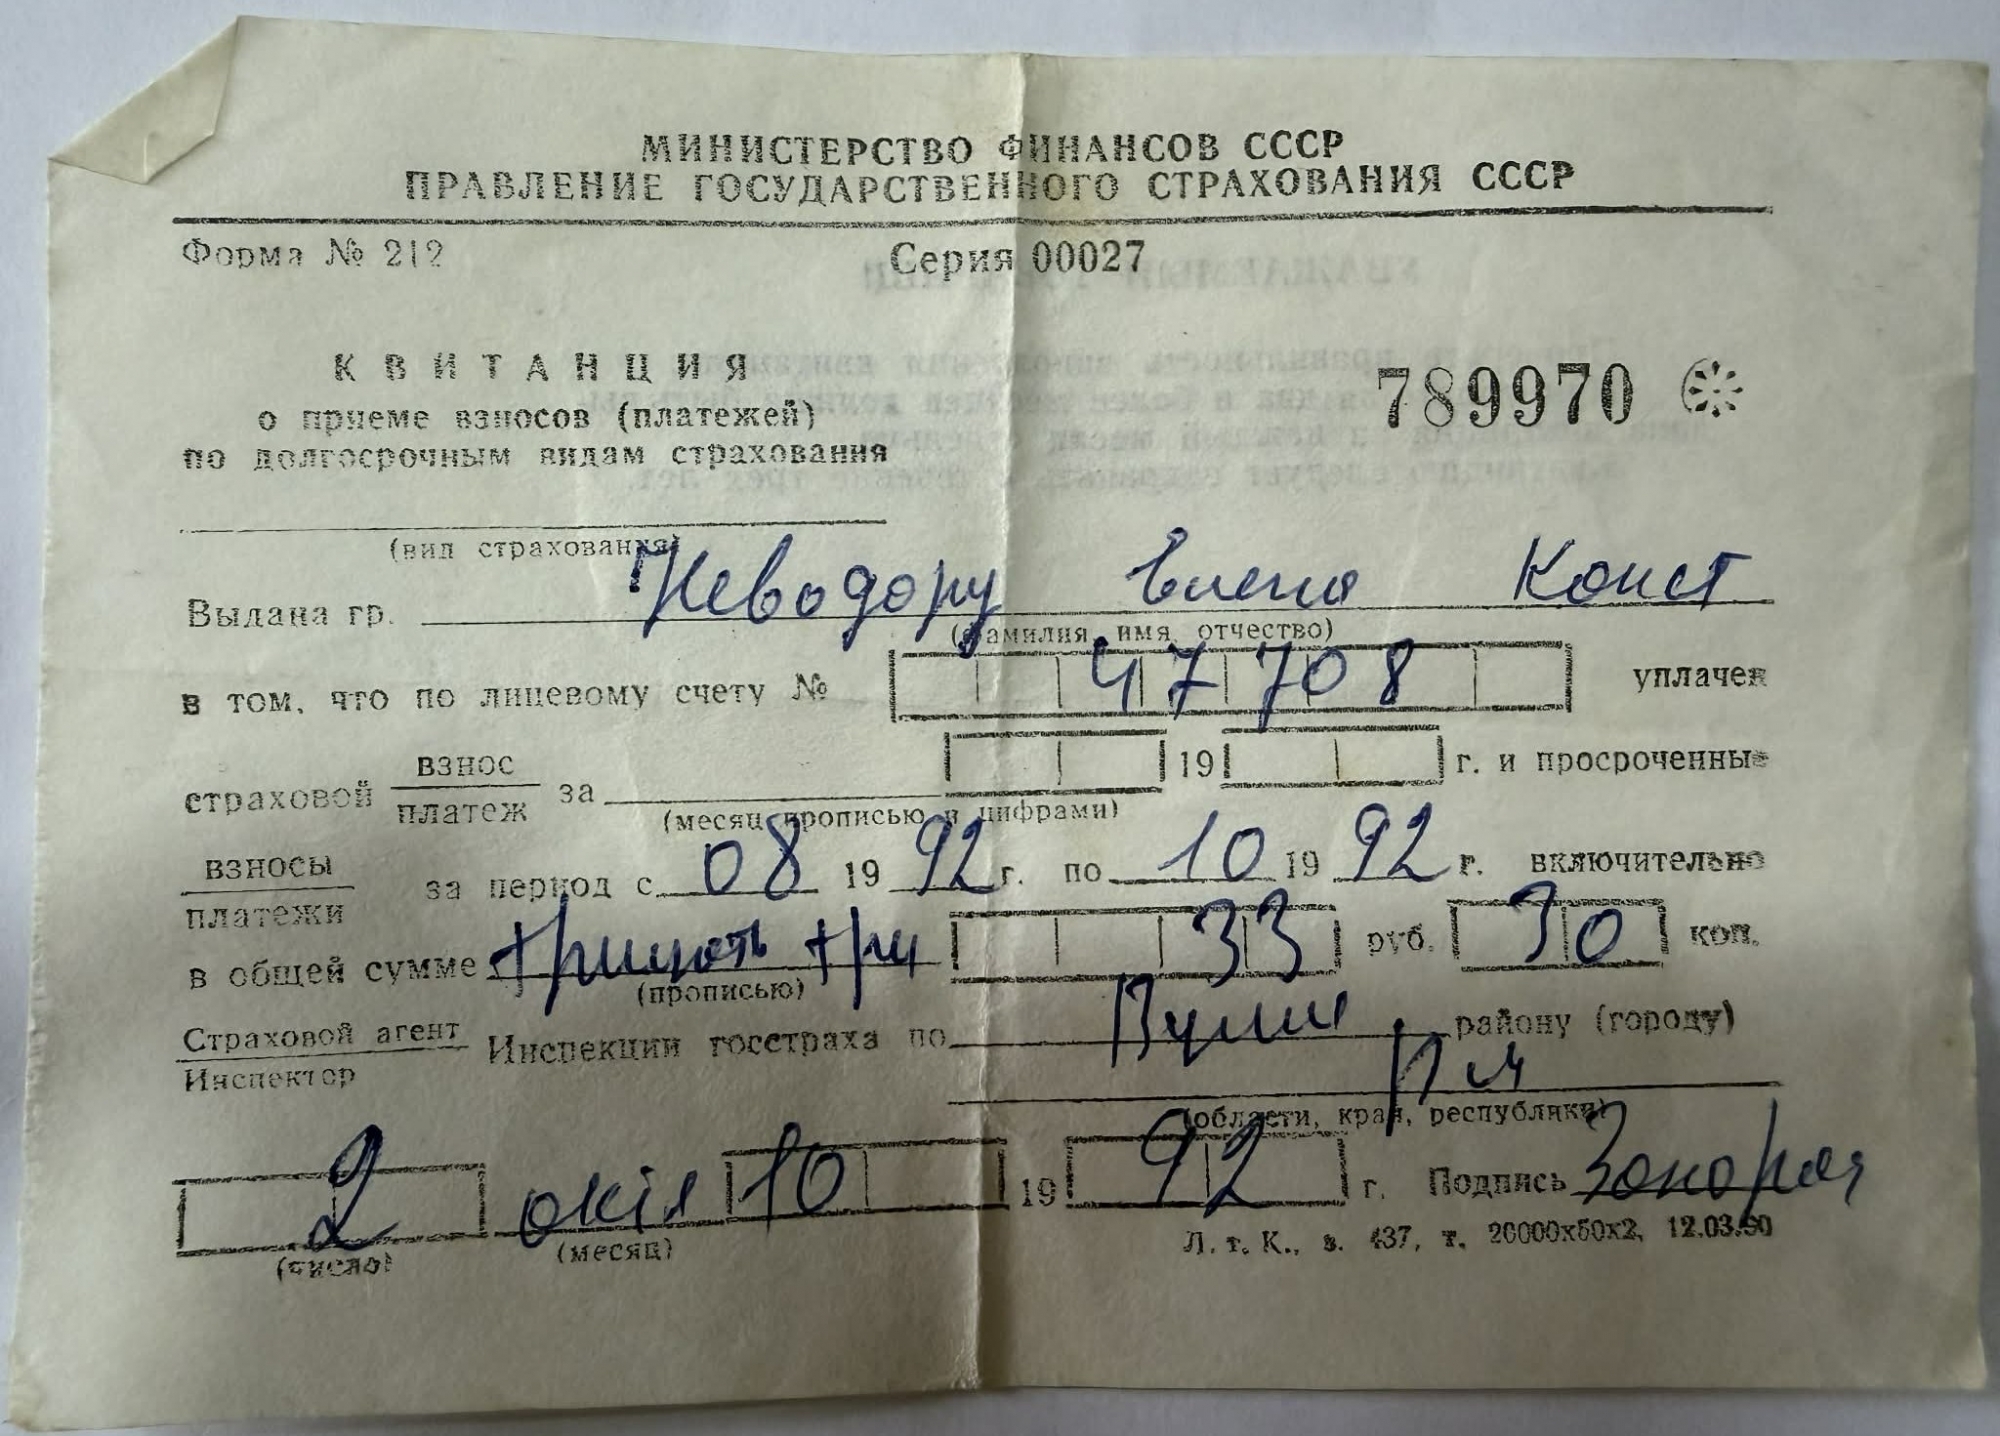 МИНИСТЕРСТВО ФИНАНСОВ СССР
ПРАВЛЕНИЕ ГОСУДАРСТВЕННОГО СТРАХОВАНИЯ СССР
Форма № 212
Серия 00027
КВИТАНЦИЯ
789970
о приеме взносов (платежей)
по долгосрочным видам страхования
(вид страхования)
Выдана гр. Неводору Елена Конст
(фамилия, имя, отчество)
в том, что по лицевому счету № 47708 уплачен
страховой взнос платеж за 19 г. и просроченные
(месяц прописью и цифрами)
взносы платежи за период с 08 1992 г. по 10 1992 г. включительно
в общей сумме тридцать три 33 руб. 30 коп.
(прописью)
Страховой агент Инспектор Инспекции госстраха по району (городу)
(области, края, республики)
2 10 1992 г. Подпись
(число) (месяц)
Л. т. К., з. 437, т. 20000х50х2, 12.03.90